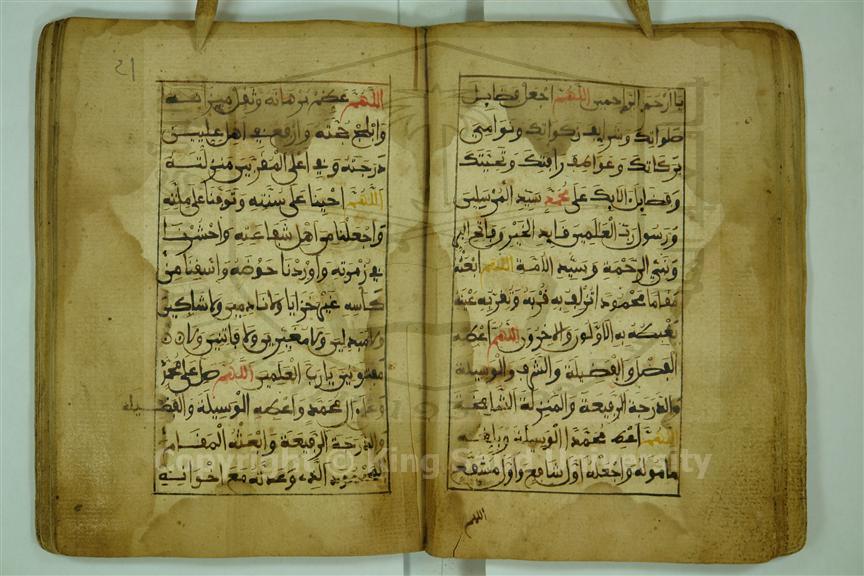 يا أرحم الراحمين اللهم اجعل فضايل
صلواتك وشرايف زكواتك ونوامي
بركاتك وعواطف رافتك وتحيتك
وفضايل الايك على محمد سيد المرسلين
ورسول رب العلمين قايد الخير وفاتح البر
ونبي الرحمة وسيد الامة اللهم ابعثه
مقاما محمودا تزلف به قربه وتقر به عينه
يغبطه به الاولون والاخرون اللهم اعطه
الفضل والفضيلة والشرف والوسيلة
والدرجة الرفيعة والمنزلة الشامخة
اللهم اعط محمدا الوسيلة وبلغه
ماموله واجعله اول شافع واول مشفع
اللهم
21
اللهم عظم برهانه وثقل ميزانه
وابلج حجته وارفع في اهل عليين
درجته وفي اعلى المقربين منزلته
اللهم احينا على سنته وتوفنا على ملته
واجعلنا من اهل شفاعته واحشرنا
في زمرته واوردنا حوضه واسقنا من
كاسه غير خزايا ولا نادمين ولا شاكين
ولا مبدلين ولا مغيرين ولا فاتنين ولا
مفتونين يا رب العلمين اللهم صل على محمد
وعلى ال محمد واعطه الوسيلة والفضيلة
والدرجة الرفيعة وابعثه المقام
المحمود الذي وعدته مع اخوانه
Copyright © King Saud University